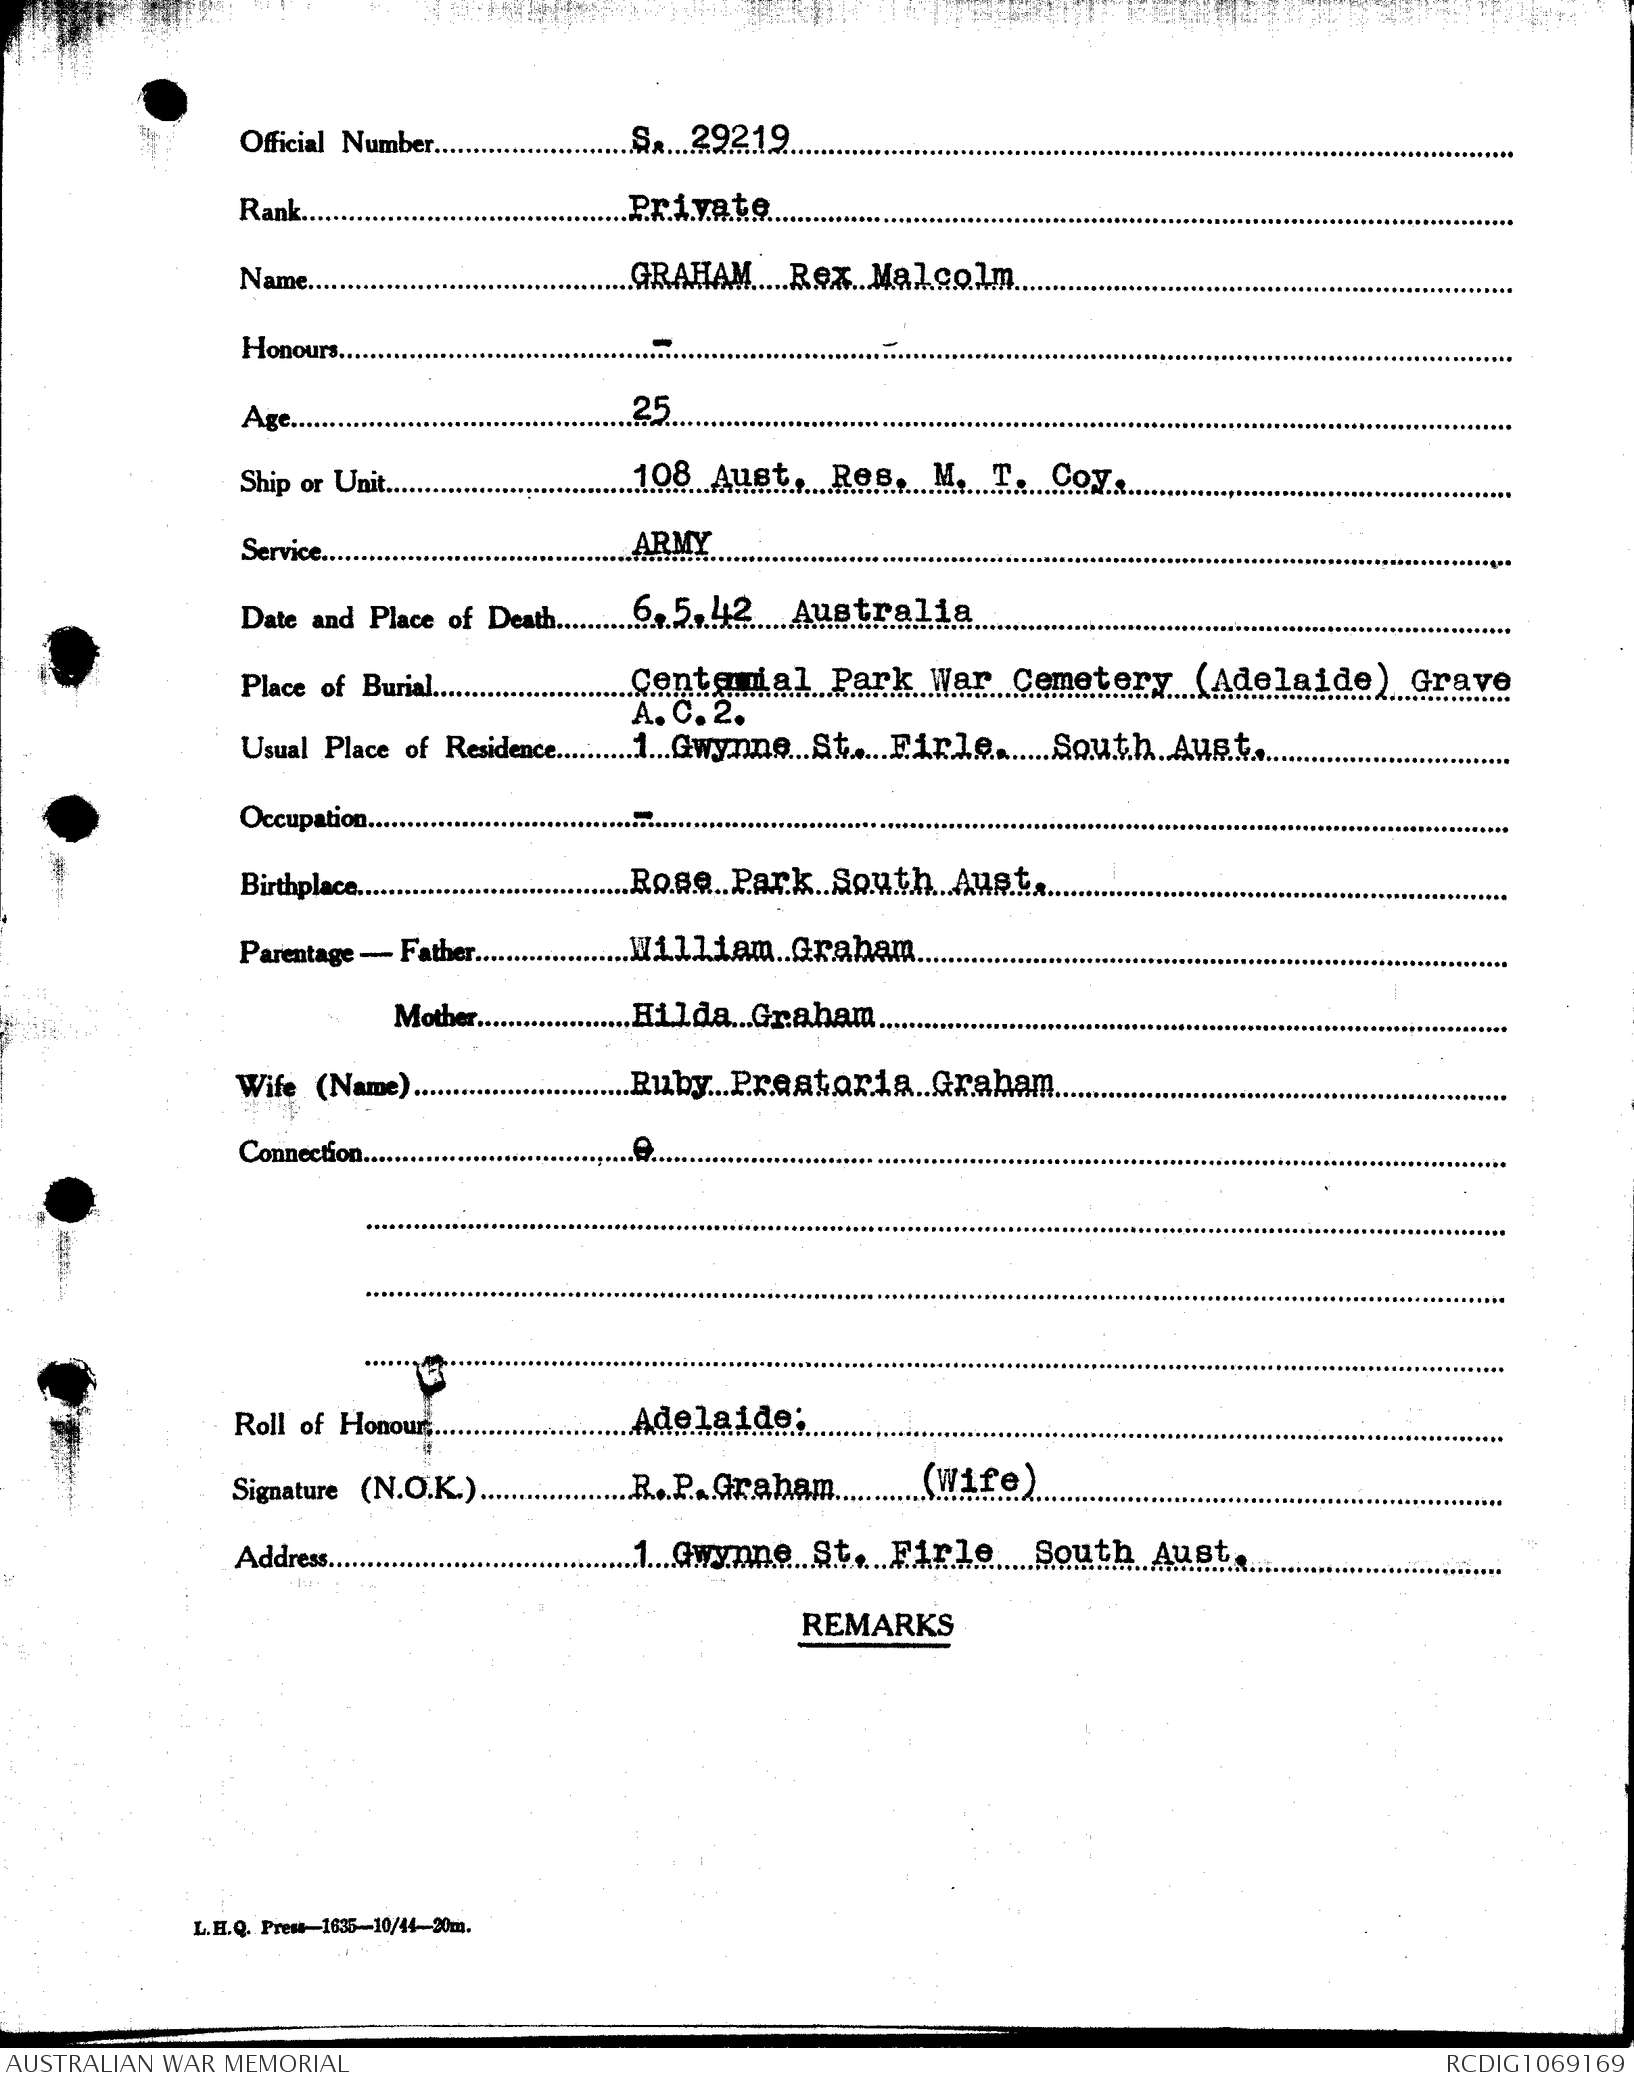 Official Number S. 29219
Rank Private
Name GRAHAM Rex Malcolm
Honours - -
Age 25
Ship or Unit 108 Aust. Res. M. T. Coy.
Service ARMY
Date and Place of Death 6.5.42 Australia
Place of Burial Centennial Park War Cemetery (Adelaide) Grave
A.C.2.
Usual Place of Residence 1 Gwynne St. Firle. South Aust.
Occupation -
Birthplace Rose Park South Aust.
Parentage — Father William Graham
Mother Hilda Graham
Wife (Name) Ruby Prestoria Graham
Connection
Roll of Honour Adelaide.
Signature (N.O.K.) R.P.Graham (Wife)
Address 1 Gwynne St. Firle South Aust.
REMARKS
L.H.Q. Press—1635—10/44—20m.
AUSTRALIAN WAR MEMORIAL RCDIG1069169